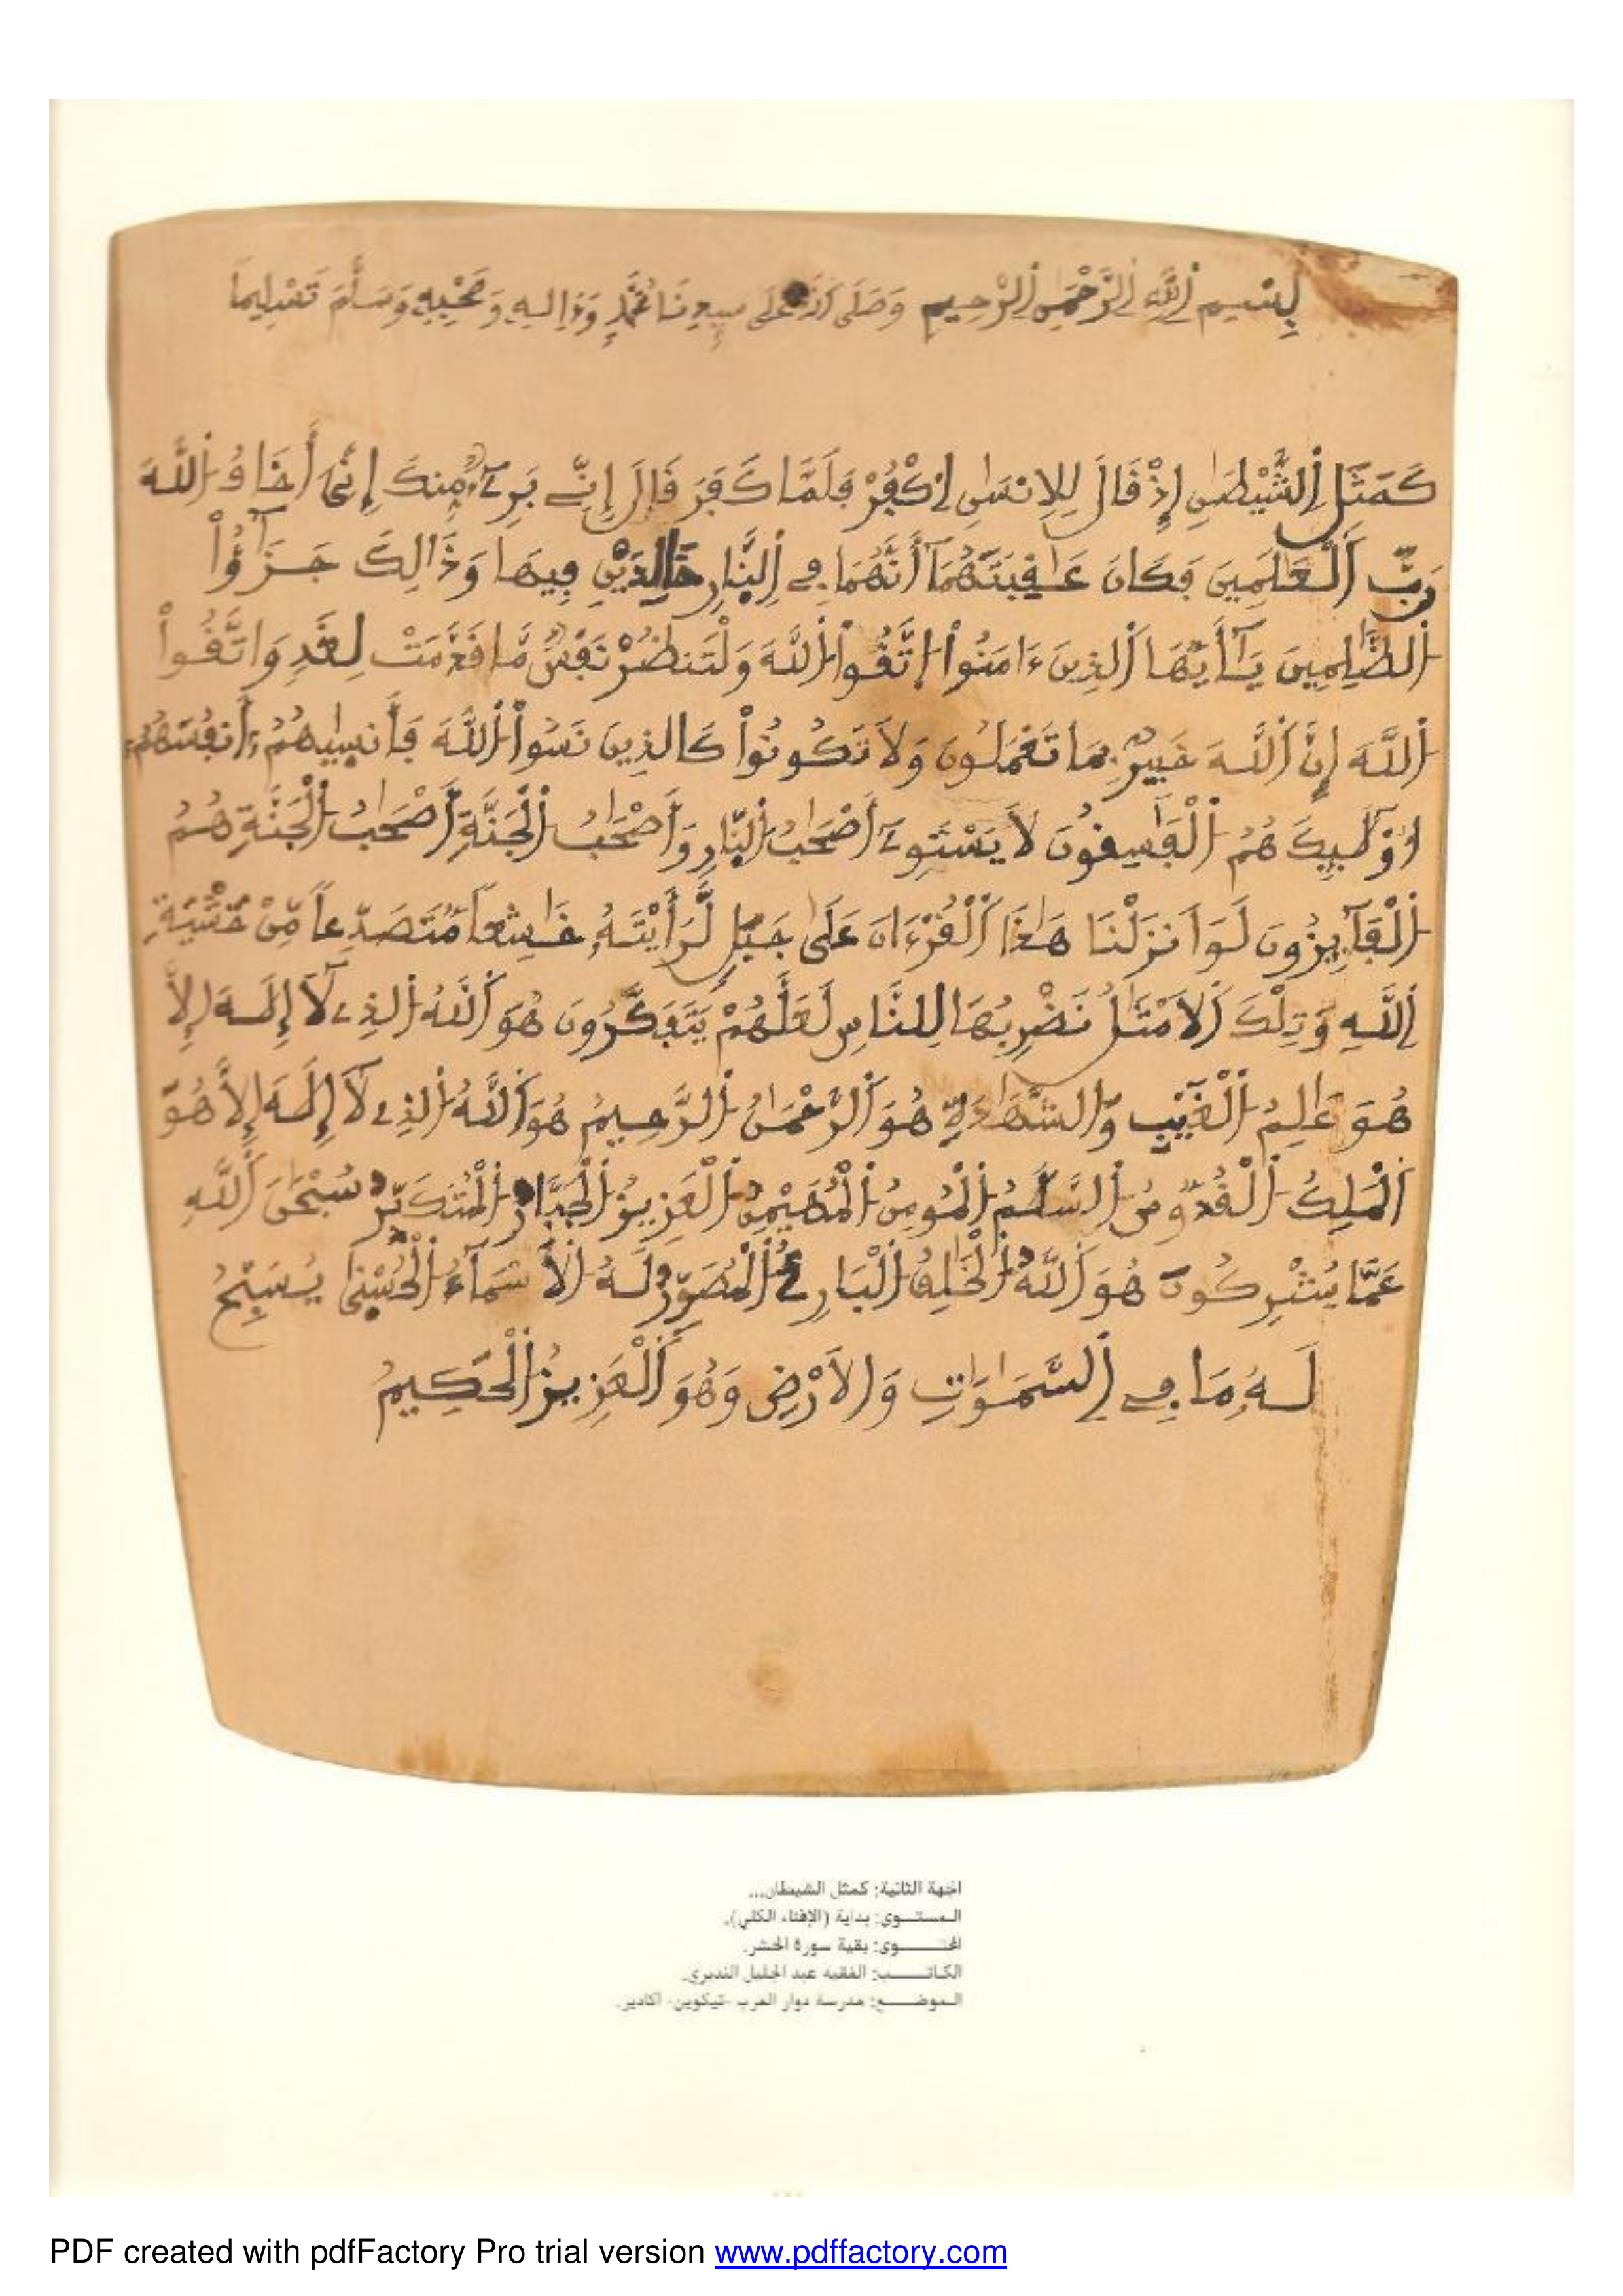 بِسْمِ اِ۬للَّهِ اِ۬لرَّحْمَٰنِ اِ۬لرَّحِيمِ وَصَلَى اَ۬للَّهُ عَلَى سيدِنَا مُحَمَّدٍ وَءَالِهِ وَصَحْبِهِ وَسَلَّمَ تَسْلِيماً
كَمَثَلِ اِ۬لشَّيْطَٰنِ إِذْ قَالَ لِلِانسَٰنِ اِ۟كْفُرْ فَلَمَّا كَفَرَ قَالَ إِنِّے بَرِےٓءٞ مِّنكَ إِنِّيَ أَخَافُ اُ۬للَّهَ
رَبَّ اَ۬لْعَٰلَمِينَ فَكَانَ عَٰقِبَتَهُمَآ أَنَّهُمَا فِے اِ۬لنّ۪ارِ خَٰلِدَيْنِ فِيهَا وَذَٰلِكَ جَزَٰٓؤُاْ
اُ۬لظَّٰلِمِينَ يَٰٓأَيُّهَا اَ۬لذِينَ ءَامَنُواْ اُ۪تَّقُواْ اُ۬للَّهَ وَلْتَنظُرْ نَفْسٞ مَّا قَدَّمَتْ لِغَدٖ وَاتَّقُواْ
اُ۬للَّهَ إِنَّ اَ۬للَّهَ خَبِيرُۢ بِمَا تَعْمَلُونَ وَلَا تَكُونُواْ كَالذِينَ نَسُواْ اُ۬للَّهَ فَأَنس۪يٰهُمُۥٓ أَنفُسَهُمُۥٓ
أُوْلَٰٓئِكَ هُمُ اُ۬لْفَٰسِقُونَ لَا يَسْتَوِےٓ أَصْحَٰبُ اُ۬لنّ۪ارِ وَأَصْحَٰبُ اُ۬لْجَنَّةِ أَصْحَٰبُ اُ۬لْجَنَّةِ هُمُ
اُ۬لْفَآئِزُونَ لَوَ اَنزَلْنَا هَٰذَا اَ۬لْقُرْءَانَ عَلَىٰ جَبَلٖ لَّرَأَيْتَهُۥ خَٰشِعاٗ مُّتَصَدِّعاٗ مِّنْ خَشْيَةِ
اِ۬للَّهِ وَتِلْكَ اَ۬لَامْثَٰلُ نَضْرِبُهَا لِلنَّاسِ لَعَلَّهُمْ يَتَفَكَّرُونَ هُوَ اَ۬للَّهُ اُ۬لذِے لَآ إِلَٰهَ إِلَّا
هُوَ عَٰلِمُ اُ۬لْغَيْبِ وَالشَّهَٰدَةِ هُوَ اَ۬لرَّحْمَٰنُ اُ۬لرَّحِيمُ هُوَ اَ۬للَّهُ اُ۬لذِے لَآ إِلَٰهَ إِلَّا هُوَ
اَ۬لْمَلِكُ اُ۬لْقُدُّوسُ اُ۬لسَّلَٰمُ اُ۬لْمُومِنُ اُ۬لْمُهَيْمِنُ اُ۬لْعَزِيزُ اُ۬لْجَبَّارُ اُ۬لْمُتَكَبِّرُ سُبْحَٰنَ اَ۬للَّهِ
عَمَّا يُشْرِكُونَ هُوَ اَ۬للَّهُ اُ۬لْخَٰلِقُ اُ۬لْبَارِۓُ اُ۬لْمُصَوِّرُ لَهُ اُ۬لَاسْمَآءُ اُ۬لْحُسْن۪يٰ يُسَبِّحُ
لَهُۥ مَا فِے اِ۬لسَّمَٰوَٰتِ وَالَارْضِ وَهُوَ اَ۬لْعَزِيزُ اُ۬لْحَكِيمُ
الجهة الثانية: كمثل الشيطان...
المستوى: بداية (الإفتاء الكلي).
المحتوى: بقية سورة الحشر.
الكاتب: الفقيه عبد الجليل
الموضع: مدرسة دوار العرب -تيكوين- أكادير.
PDF created with pdfFactory Pro trial version www.pdffactory.com